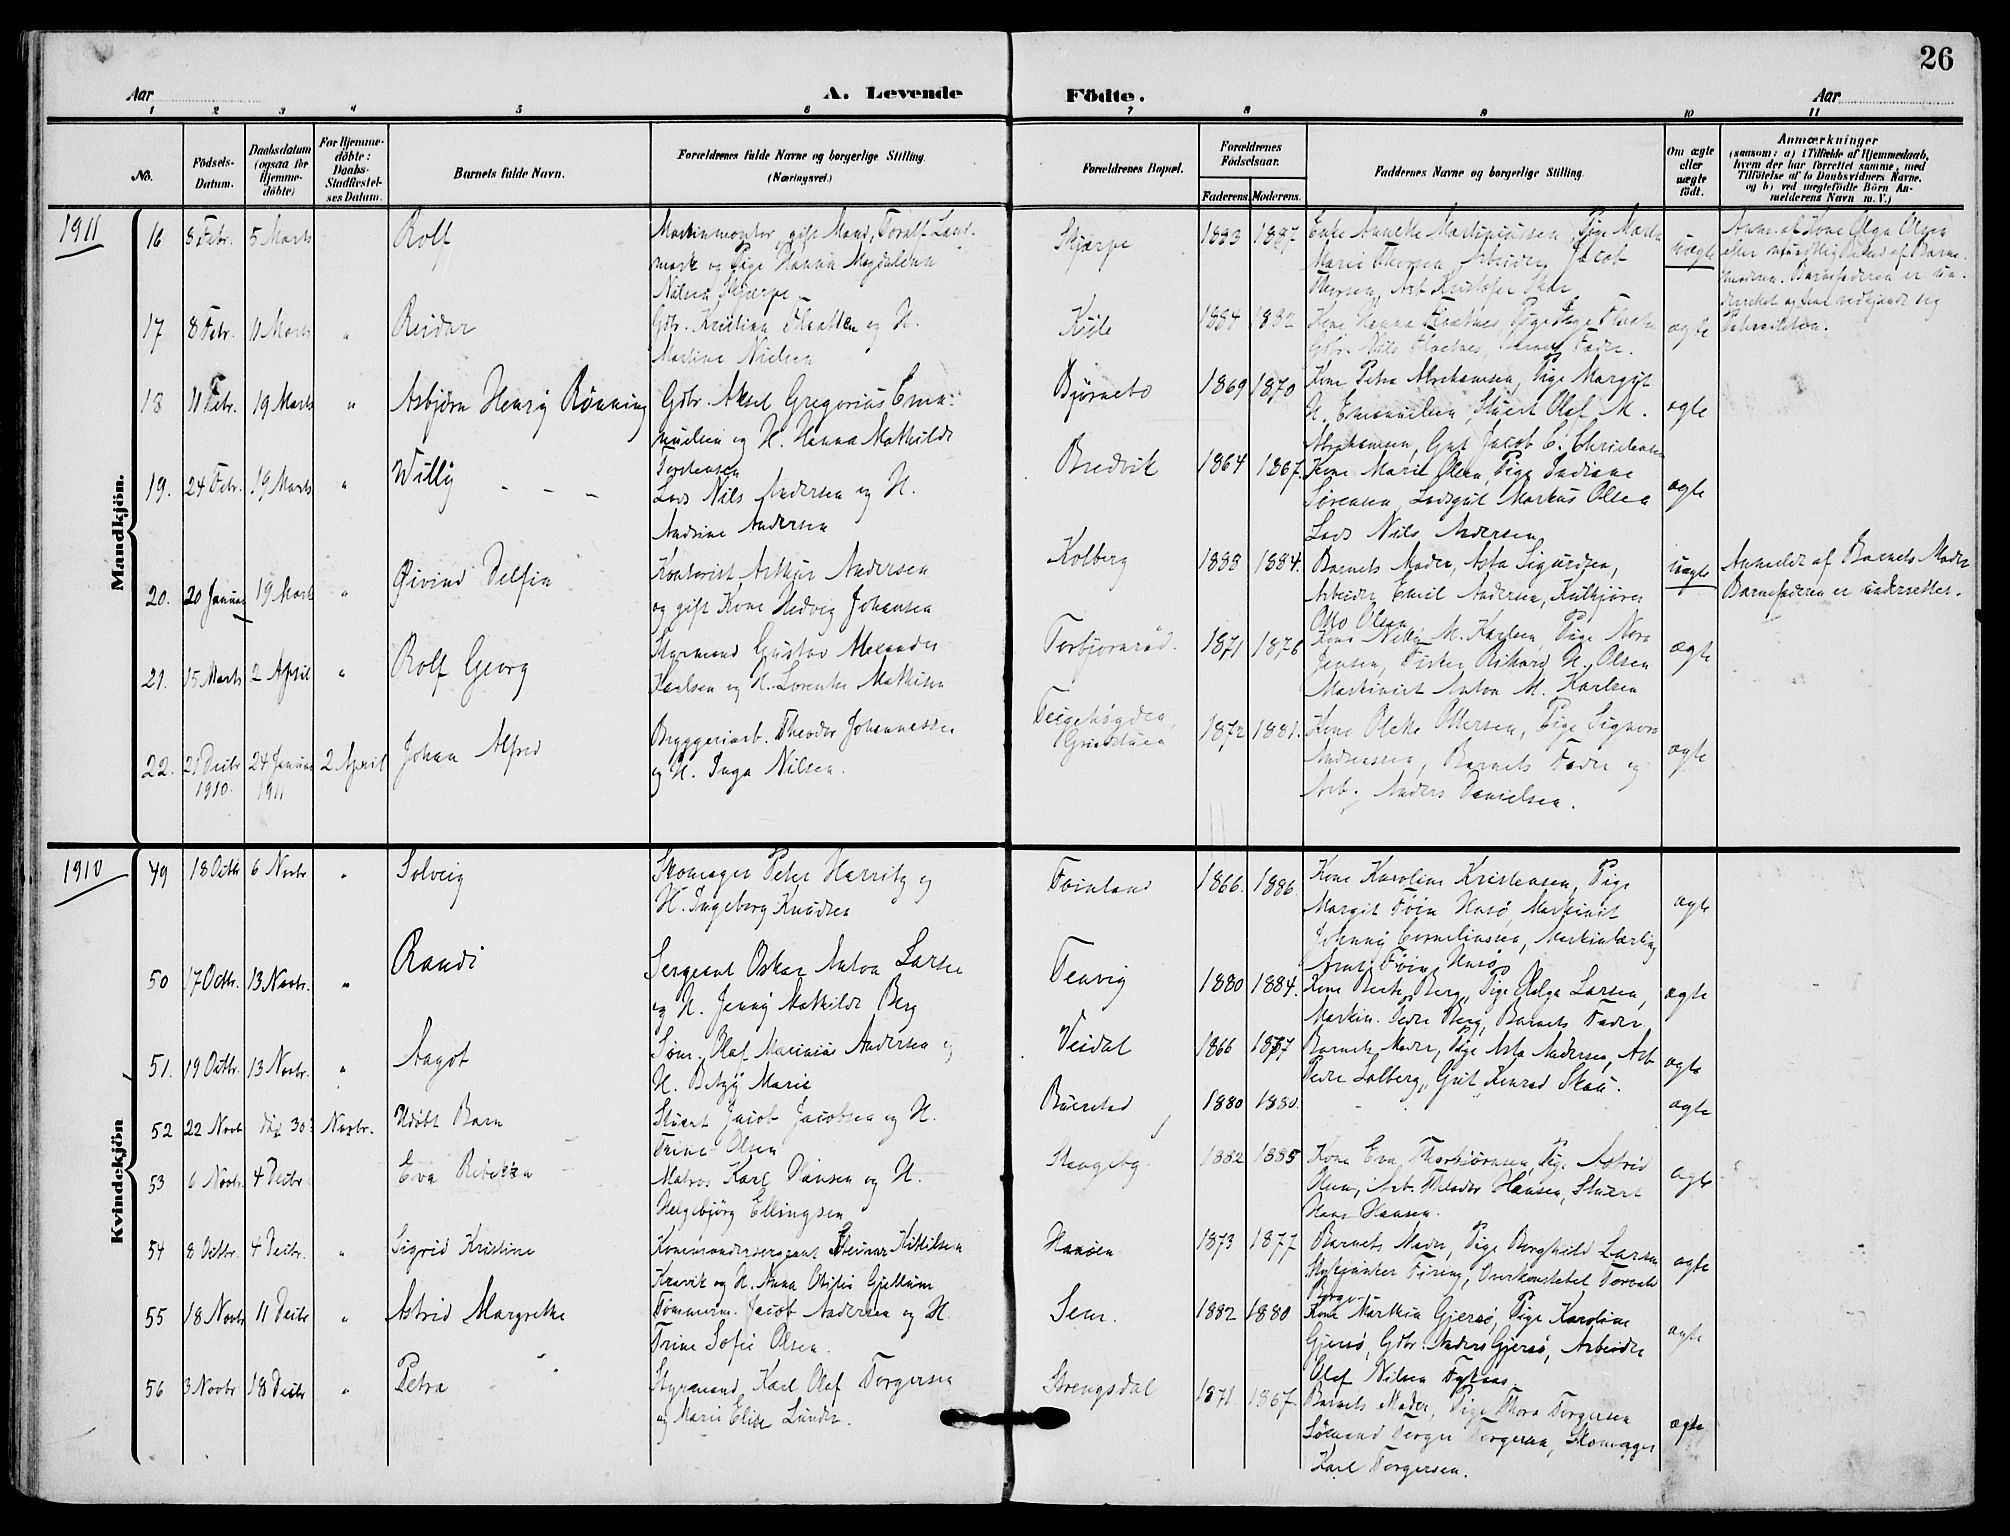 26
Aar
A. Levende Födte.
Aar
1 2 3 4 5 6 7 8 9 10 11
No.
Födsels-Datum.
Daabsdatum (ogsaa for Hjemme-döbte)
For Hjemme-döbte: Daabs-Stadfæstel-ses Datum.
Barnets fulde Navn.
Forældrenes fulde Navne og borgerlige Stilling. (Næringsvei.)
Forældrenes Bopæl.
Forældrenes Födselsaar.
Faderens. Moderens.
Faddernes Navne og borgerlige Stilling.
Om ægte eller uægte födt.
Anmærkninger
(saasom: a) i Tilfælde af Hjemmedaab,
hvem der har forrettet samme, med
Tilföielse af to Daabsvidners Navne,
og b) ved uægtefödte Börn An-
melderens Navn m. V.)
Mandkjön.
1911
16 8 Febr. 5 Marts Rolf
Maskinmontør, gift Mand, Toralf Land-
mark og Pige Hanna Magdalena
Nilsen Skjærpe
Skjærpe 1883 1887
Enke Annette Martiniussen, Pige
Marie Thorsen, Arbeider Jacob
Thorsen, Arb. Kristoffer
uægte
Anm. af Kone Olga Olsen
efter mundtlig af Barne-
moderen. Barnefaderen er un-
derrettet og har vedkjendt sig
17 8 Febr. 11 Marts " Reidar
Gbr. Kristian og H.
Martine Nielsen
Kjøle 1884 1882
Kone Hanna Pige
Gbr. Nils Barnets Fader.
ægte
18 11 Febr. 19 Marts " Asbjörn Henry Rönning
Gbr. Aksel Gregorius Ema-
nuelsen og H. Hanna Mathilde
Torstensen
Bjørnebo 1869 1870
Kone Petra Abrahamsen, Pige Margit
H. Emanuelsen, Stuert Olaf M.
Abrahamsen, Gut Jacob E. Christensen
ægte
19. 24 Febr. 19 Marts " Willy - - -
Lods Nils Andersen og H.
Andrine Andersen
Bredvik 1864 1867.
Kone Marie Olsen, Pige Indiane
Sörensen, Lodsgut Markus Olsen
Lods Nils Andersen
ægte
20. 20 Januar 19 Marts " Øivind Delfin
Kontorist Arthur Andersen
og gift Kone Hedvig Johansen
Kolberg 1883 1884.
Barnets Moder, Asta Sigurdsen,
Arbeider Emil Andersen, Kulkjører
Otto Olsen
uægte
Anmeldt af Barnets Moder
Barnefaderen er underrettet.
21. 15 Marts 2 April " Rolf Georg
Styrmand Gustav Alexander
Karlsen og H. Lorentse Mathisen
Torbjørnrød. 1871 1876
Kone Nelly M. Karlsen, Pige Nora
Jensen, Fisker Rikard H. Olsen
Maskinist Anton M. Karlsen
ægte
22. 21 Decbr 1910. 24 Januar 1911 2 April Johan Alfred
Bryggeriarb. Theodor Johannessen
og H. Inga Nilsen.
Teigehøgden,
1872 1881.
Kone Oleke Ottersen, Pige Signora
Andreassen, Barnets Fader og
Arb. Anders Danielsen.
ægte
Kvindekjön
1910
49 18 Octbr 6 Novbr " Solveig
Skomager Peter Harritz og
H. Ingeborg Knudsen
Føinland 1866. 1886
Kone Karoline Kristensen, Pige
Margit Föin Husö, Maskinist
Johnny Corneliussen, Maskinlærling
Arnt Föin Husö
ægte
50 17 Octbr. 13 Novbr. " Randi
Sergeant Oskar Anton Larsen
og H. Jenny Mathilde Berg
Tenvig 1880 1884.
Kone Berte Berg, Pige Helga Larsen,
Maskin. Peder Berg, Barnets Fader
ægte
51. 19 Octbr. 13 Novbr. " Aagot
Søm. Olaf Marinius Andersen og
H. Betzy Marie
Veidal 1866 1877
Barnets Moder, Pige Asta Andersen, Arb
Peder Solberg, Gut Konrad Skau.
ægte
52 22 Novbr död 30 Novbr. Udöbt Barn
Stuert Jacob Jacobsen og H.
Trine Olsen
Buerstad 1880 1880.
ægte
53 6 Novbr. 4 Decbr. Eva Rebekka
Matros Karl Hansen og H.
Helgebjörg Ellingsen
1882 1885
Kone Eva Thorbjörnsen, Pige Astrid
Olsen, Arb. Theodor Hansen, Stuert
Hans Hansen.
ægte
54 8 Octbr. 4 Decbr. " Sigrid Kristine
Kommandersergeant Steinar Kittilsen
Kravik og H. Anna Otilie Gjellum
1873 1877
Barnets Moder, Pige Borghild Larsen
Styrmand Overkonstabel Torvald
ægte
55 18 Novbr 11 Decbr " Astrid Margrethe
Tömmerm. Jacob Andersen og H.
Trine Sofie Olsen.
Sem. 1882 1880
Kone Mathea Gjersö, Pige Karoline
Gjersö, Gbr. Anders Gjersö, Arbeider
Olaf Nilsen
ægte
56 3 Novbr 18 Decbr " Petra
Styrmand Karl Olaf Torgersen
og Marie Elise Lunde.
Strengsdal 1871 1867.
Barnets Moder, Pige Thora Torgersen
Sömand Torger Torgersen, Skomager
Karl Torgersen.
ægte